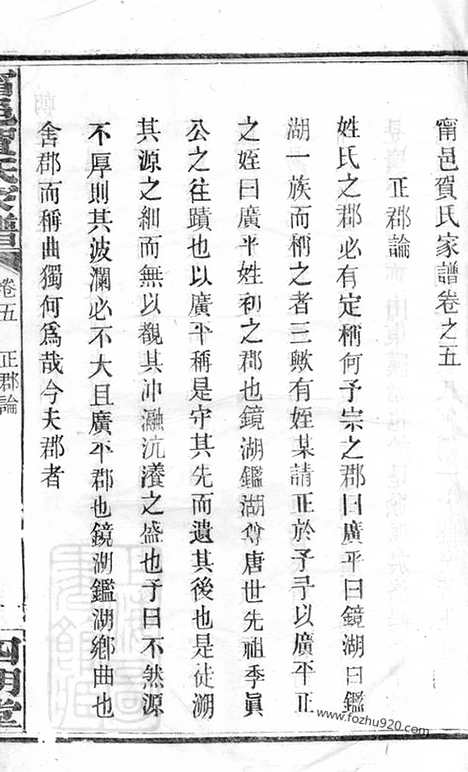 甯邑賀氏家譜卷之五
正郡論
姓氏之郡必有定稱何予宗之郡曰廣平曰鏡湖曰鑑
湖一族而稱之者三歟有姪某請正於予予以廣平正
之姪曰廣平姓初之郡也鏡湖鑑湖尊唐世先祖季眞
公之往蹟也以廣平稱是守其先而遺其後也是徒溯
其源之細而無以觀其沖瀜沆瀁之盛也予曰不然源
不厚則其波瀾必不大且廣平郡也鏡湖鑑湖鄉曲也
舍郡而稱曲獨何爲哉今夫郡者
甯邑賀氏家譜
卷五 正郡論
一
四明堂
www.fozhu920.com